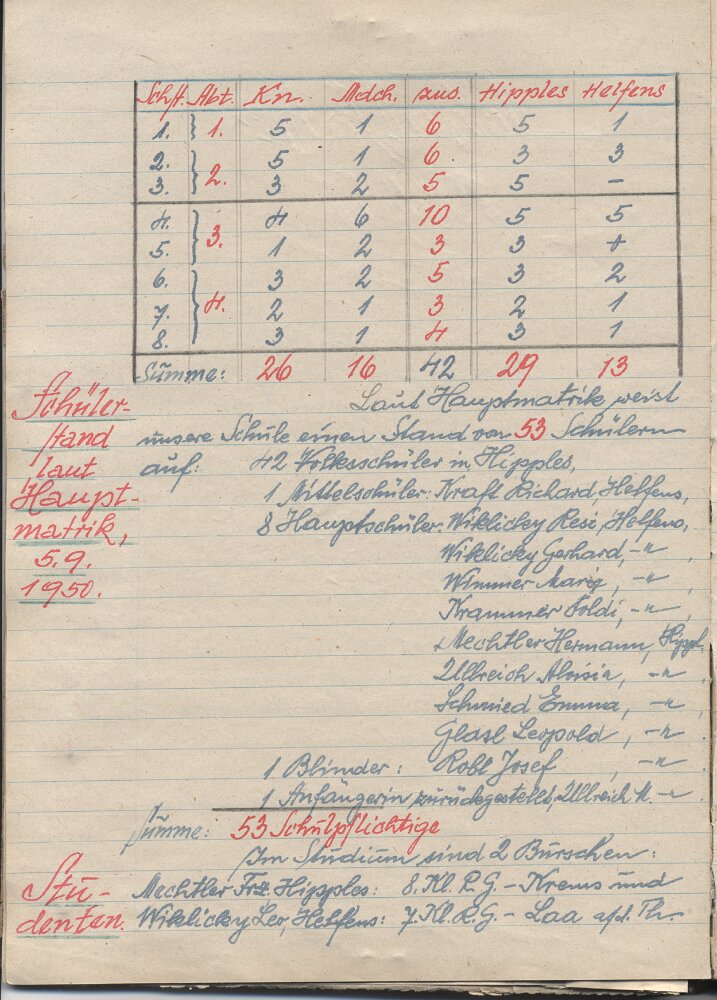 Schst. Abt. Kn. Mdch. zus. Hipples Helfens
1. } 1. 5 1 6 5 1
2. } 2. 5 1 6 3 3
3. 3 2 5 5 –
4. } 3. 4 6 10 5 5
5. 1 2 3 3 +
6. } 4. 3 2 5 3 2
7. 2 1 3 2 1
8. 3 1 4 3 1
Summe: 26 16 42 29 13
Schüler-
stand
laut
Haupt-
matrik,
5.9.
1950.
Laut Hauptmatrik weist
unsere Schule einen Stand von 53 Schülern
auf: 42 Volksschüler in Hipples,
1 Mittelschüler: Kraft Richard Helfens,
8 Hauptschüler: Wiklicky Resi, Helfens,
Wiklicky Gerhard, -"- ,
Wimmer Maria, -"- ,
Krammer Poldi, -"- ,
Mechtler Hermann, Hippl.
Ullreich Aloisia, -"- ,
Schmied Emma, -"- ,
Glasl Leopold, -"- .
1 Blinder: Robl Josef, -"-
1 Anfängerin zurückgestellt, Ullreich M. -"- .
Summe: 53 Schulpflichtige
Stu-
denten.
Im Studium sind 2 Burschen:
Mechtler Frz. Hipples: 8. Kl. R. G. – Krems und
Wiklicky Leo, Helfens: 7. Kl. R. G. – Laa a/d. Th.